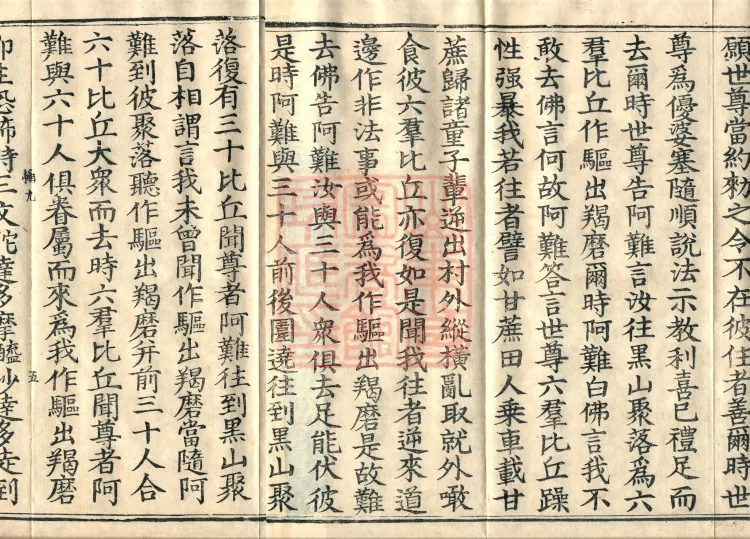 願世尊當約勑之令不在彼住者善爾時世
尊爲優婆塞隨順說法示教利喜已禮足而
去爾時世尊告阿難言汝往黑山聚落爲六
羣比丘作驅出羯磨爾時阿難白佛言我不
敢去佛言何故阿難答言世尊六羣比丘躁
性强暴我若往者譬如甘蔗田人乗車載甘
蔗歸諸童子輩逆出村外縱橫亂取就外噉
食彼六羣比丘亦復如是聞我往者逆來道
邊作非法事或能爲我作驅出羯磨是故難
去佛告阿難汝與三十人衆俱去足能伏彼
是時阿難與三十人前後圍遶往到黑山聚
落復有三十比丘聞尊者阿難往到黑山聚
落自相謂言我未曾聞作驅出羯磨當隨阿
難到彼聚落聽作驅出羯磨并前三十人合
六十比丘大衆而去時六羣比丘聞尊者阿
難與六十人俱眷屬而來爲我作驅出羯磨
輔九
五
即生恐怖時三文陀達多摩醯沙達多走到